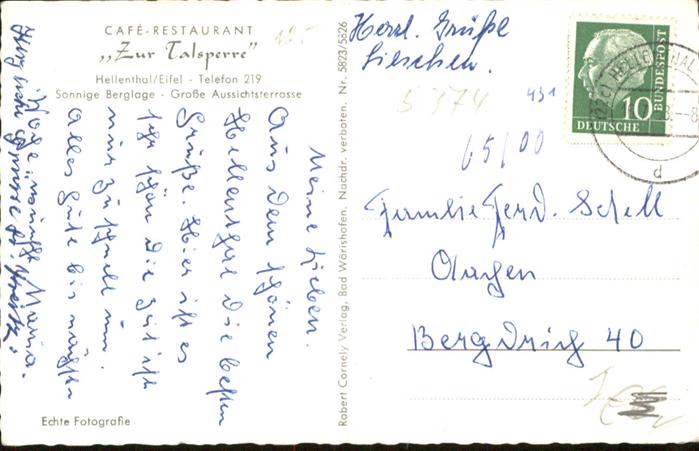 CAFÉ-RESTAURANT
„Zur Talsperre"
Hellenthal/Eifel - Telefon 219
Sonnige Berglage - Große Aussichtsterrasse
Meine Lieben.
Aus dem schönen
Hellenthal die besten
Grüße. Hier ist es
sehr schön die Zeit ist
nur zu schnell um.
Alles Gute bis nächste
Woche, Maria.
Herzliche Grüsse
Echte Fotografie
Robert Cornely Verlag, Bad Wörishofen. Nachdr. verboten. Nr. 5823/5826
Herzl. Grüße
Lieschen.
5374
431
65/00
10
DEUTSCHE
BUNDESPOST
HELLENTHAL
d
Familie Ferd. Schell
Aachen
Bergdrisch 40